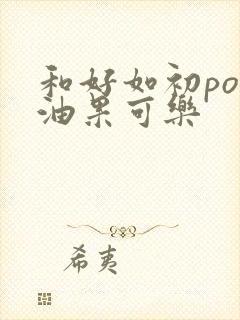 和好如初po
油果可樂
希夷